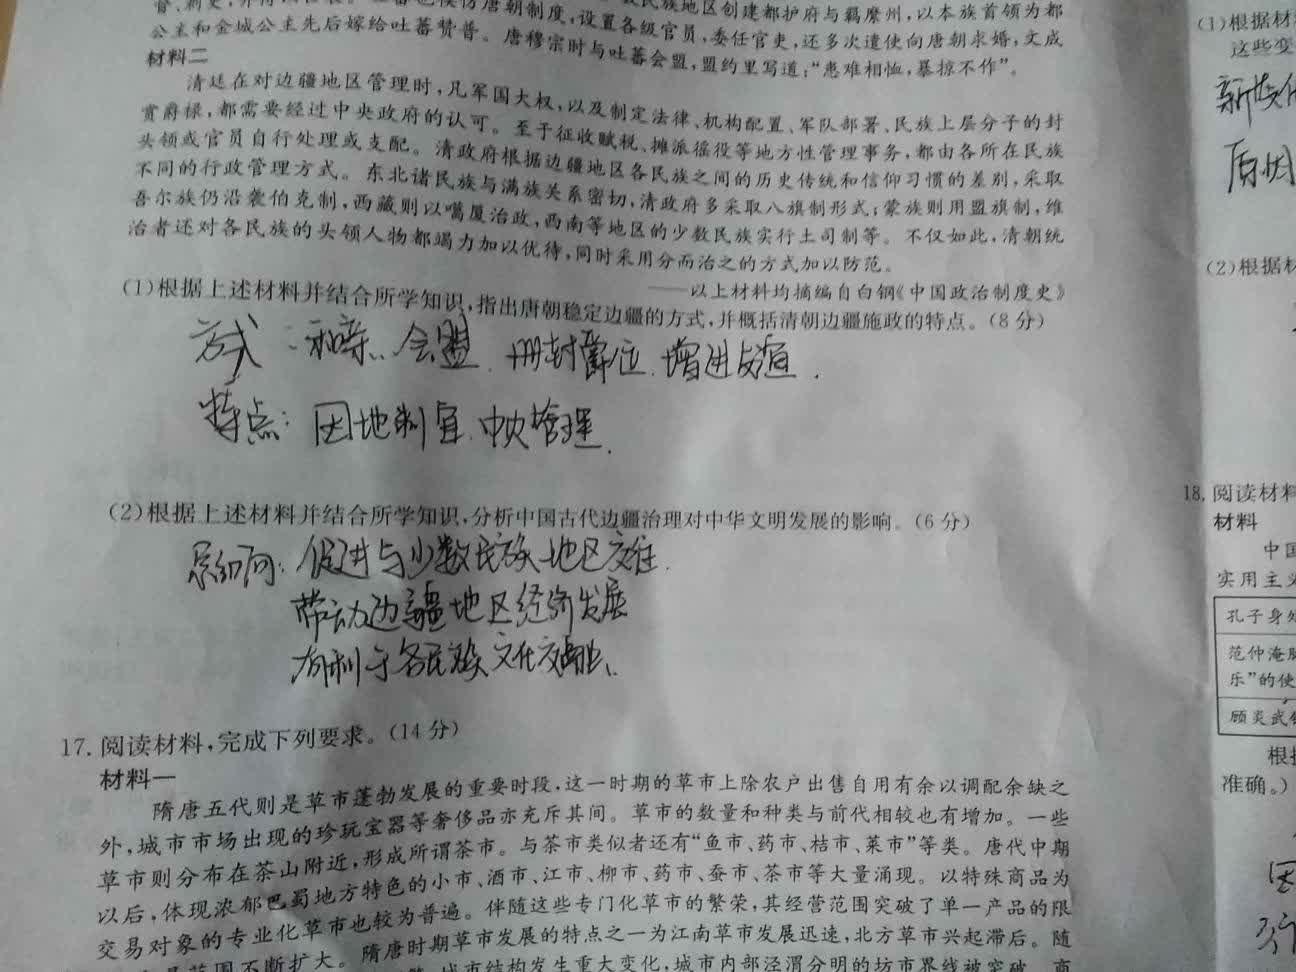 督、刺史,并得以世袭。
民族地区创建都护府与羁縻州,以本族首领为都
仿唐朝制度,设置各级官员,委任官吏,还多次遣使向唐朝求婚,文成
公主和金城公主先后嫁给吐蕃赞普。唐穆宗时与吐蕃会盟,盟约里写道:“患难相恤,暴掠不作”。
材料二
清廷在对边疆地区管理时,凡军国大权,以及制定法律、机构配置、军队部署、民族上层分子的封
赏爵禄,都需要经过中央政府的认可。至于征收赋税、摊派徭役等地方性管理事务,都由各所在民族
头领或官员自行处理或支配。清政府根据边疆地区各民族之间的历史传统和信仰习惯的差别,采取
不同的行政管理方式。东北诸民族与满族关系密切,清政府多采取八旗制形式;蒙族则用盟旗制,维
吾尔族仍沿袭伯克制,西藏则以噶厦治政,西南等地区的少数民族实行土司制等。不仅如此,清朝统
治者还对各民族的头领人物都竭力加以优待,同时采用分而治之的方式加以防范。
——以上材料均摘编自白钢《中国政治制度史》
(1)根据上述材料并结合所学知识,指出唐朝稳定边疆的方式,并概括清朝边疆施政的特点。(8分)
方式:和亲、会盟、册封爵位、增进友谊.
特点:因地制宜、中央管理.
(2)根据上述材料并结合所学知识,分析中国古代边疆治理对中华文明发展的影响。(6分)
影响:促进与少数民族地区交往.
带动边疆地区经济发展
有利于各民族文化交融.
17.阅读材料,完成下列要求。(14分)
材料一
隋唐五代则是草市蓬勃发展的重要时段,这一时期的草市上除农户出售自用有余以调配余缺之
外,城市市场出现的珍玩宝器等奢侈品亦充斥其间。草市的数量和种类与前代相较也有增加。一些
草市则分布在茶山附近,形成所谓茶市。与茶市类似者还有“鱼市、药市、桔市、菜市”等类。唐代中期
以后,体现浓郁巴蜀地方特色的小市、酒市、江市、柳市、药市、蚕市、茶市等大量涌现。以特殊商品为
交易对象的专业化草市也较为普遍。伴随这些专门化草市的繁荣,其经营范围突破了单一产品的限
范围不断扩大。隋唐时期草市发展的特点之一为江南草市发展迅速,北方草市兴起滞后。随
城市结构发生重大变化,城市内部泾渭分明的坊市界线被突破,商
(1)根据材
这些变
原因
(2)根据材
18.阅读材料
材料
中国
实用主义
孔子身处
范仲淹
乐”的使
顾炎武
根据
准确。)